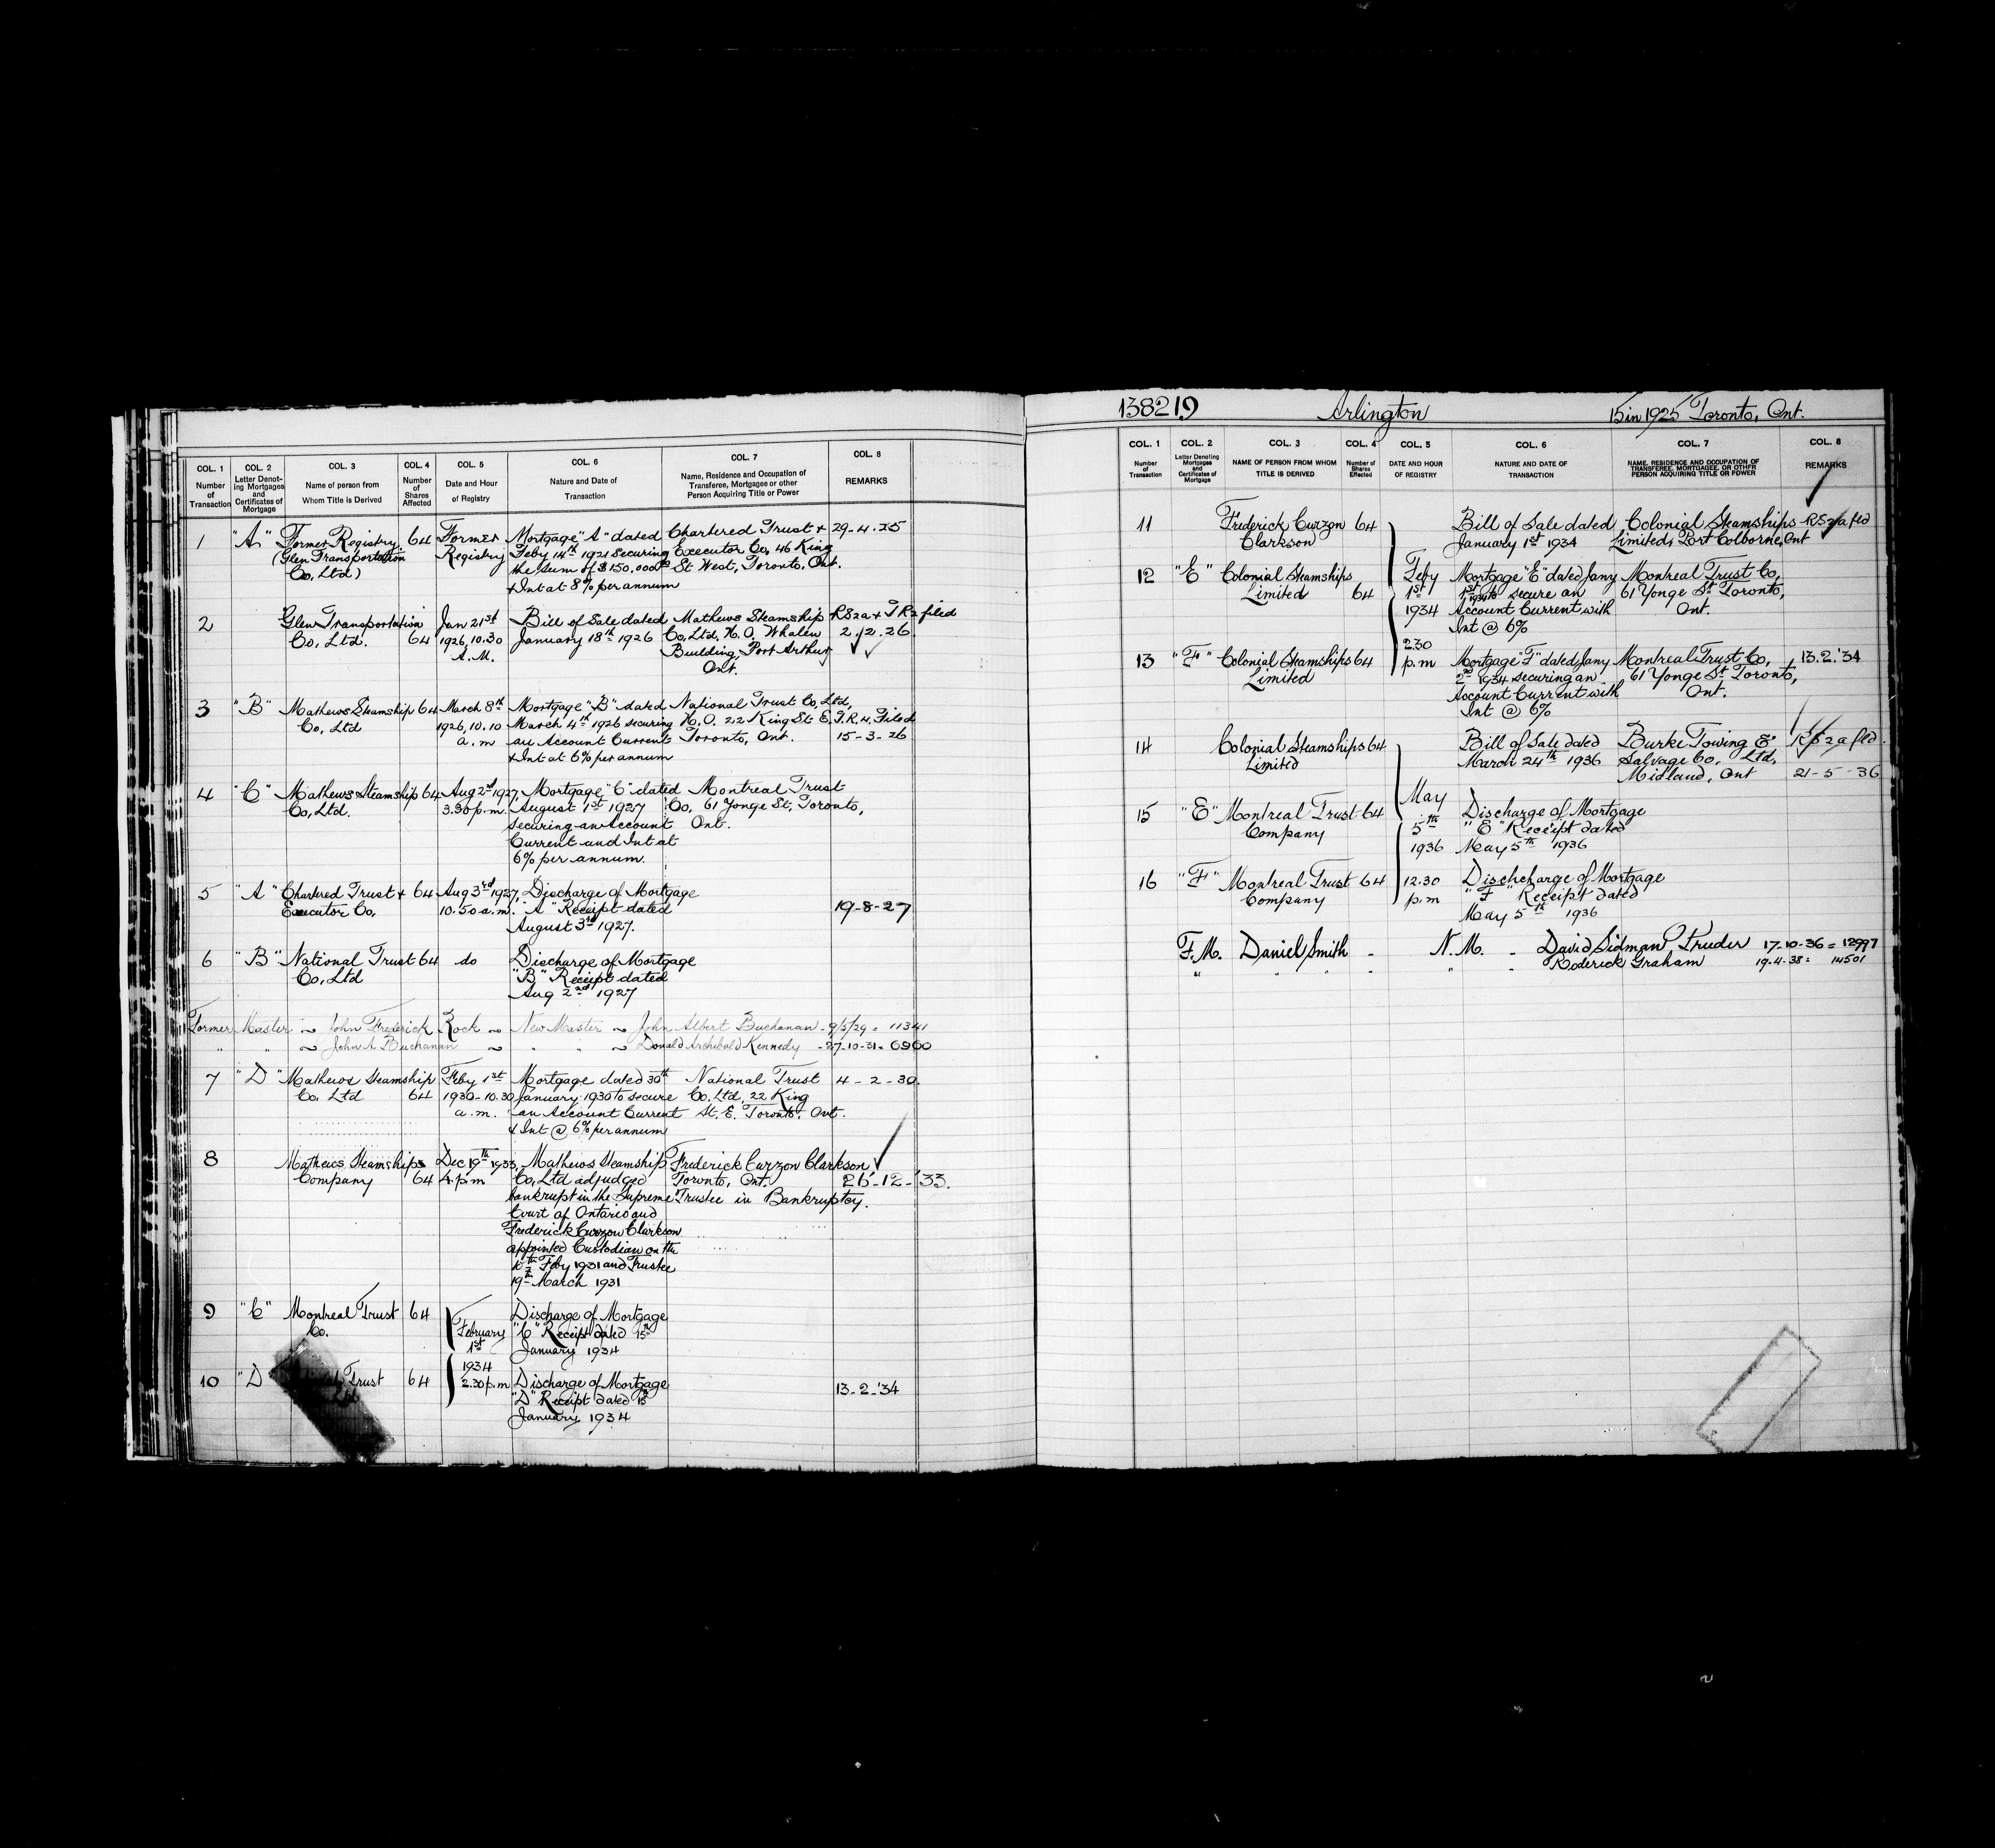 COL. 1 COL. 2 COL. 3 COL. 4 COL. 5 COL. 6 COL. 7 COL. 8
Number of Transaction
Letter Denoting Mortgages and Certificates of Mortgage
Name of person from Whom Title is Derived
Number of Shares Affected
Date and Hour of Registry
Nature and Date of Transaction
Name, Residence and Occupation of Transferee, Mortgagee or other Person Acquiring Title or Power
REMARKS
1 "A" Former Registry 64 Former Mortgage "A" dated Chartered Trust & 29-4-25
(Glen Transportation Registry Feby 14th 1921 securing Executor Co, 46 King
Co, Ltd) the sum of $150,000 St West, Toronto, Ont.
& Int at 8% per annum
2 Glen Transportation Jan 21st Bill of Sale dated Mathews Steamship RS2a & TR2 filed
Co, Ltd. 64 1926, 10.30 January 18th 1926 Co, Ltd, H.O. Whalen 2/2.26
A.M. Building, Port Arthur
Ont.
3 "B" Mathews Steamship 64 March 8th Mortgage "B" dated National Trust Co, Ltd,
Co, Ltd 1926, 10.10 March 4th 1926 securing H.O. 22 King St E, T.R.4. Filed
a.m an Account Current Toronto, Ont. 15-3-26
& Int at 6% per annum
4 "C" Mathews Steamship 64 Aug 2nd 1927, Mortgage "C" dated Montreal Trust
Co, Ltd. 3.30 p.m. August 1st 1927 Co, 61 Yonge St, Toronto,
securing an Account Ont.
Current and Int at
6% per annum.
5 "A" Chartered Trust & 64 Aug 3rd 1927, Discharge of Mortgage
Executor Co, 10.50 a.m. "A" Receipt dated 19-8-27
August 3rd 1927.
6 "B" National Trust 64 do Discharge of Mortgage
Co, Ltd "B" Receipt dated
Aug 2nd 1927
Former Master ~ John Frederick Rock ~ New Master ~ John Albert Buchanan - 9/5/29 = 11341
" " ~ John A Buchanan ~ " " ~ Donald Archibald Kennedy - 27-10-31 = 6960
7 "D" Mathews Steamship Feby 1st Mortgage dated 30th National Trust 4-2-30.
Co, Ltd 64 1930-10.30 January 1930 to secure Co, Ltd, 22 King
a.m. an Account Current St. E. Toronto, Ont.
& Int @ 6% per annum
8 Mathews Steamships Dec 19th 1933, Mathews Steamship Frederick Curzon Clarkson
Company 64 4.p.m Co, Ltd adjudged Toronto, Ont. 26-12-'33.
bankrupt in the Supreme Trustee in Bankruptcy.
Court of Ontario and
Frederick Curzon Clarkson
appointed Custodian on the
Feby 1931 and Trustee
19th March 1931
9 "C" Montreal Trust 64 February Discharge of Mortgage
Co. 1st "C" Receipt dated 15th
January 1934
1934
10 "D Trust 64 2.30 p.m Discharge of Mortgage 13-2-'34
"D" Receipt dated 15
January 1934
138219 Arlington 15 in 1925 Toronto, Ont.
COL. 1 COL. 2 COL. 3 COL. 4 COL. 5 COL. 6 COL. 7 COL. 8
Number of Transaction
Letter Denoting Mortgages and Certificates of Mortgage
NAME OF PERSON FROM WHOM TITLE IS DERIVED
Number of Shares Affected
DATE AND HOUR OF REGISTRY
NATURE AND DATE OF TRANSACTION
NAME, RESIDENCE AND OCCUPATION OF TRANSFEREE, MORTGAGEE, OR OTHER PERSON ACQUIRING TITLE OR POWER
REMARKS
11 Frederick Curzon 64 Bill of Sale dated Colonial Steamships RS2a fld
Clarkson January 1st 1934 Limited, Port Colborne, Ont
12 "E" Colonial Steamships Feby Mortgage "E" dated Jany Montreal Trust Co,
Limited 64 1st 1st 1934 to secure an 61 Yonge St Toronto,
1934 Account Current with Ont.
Int @ 6%
2.30
13 "F" Colonial Steamships 64 p.m Mortgage "F" dated Jany Montreal Trust Co, 13.2.'34
Limited 2nd 1934 securing an 61 Yonge St Toronto,
Account Current with Ont.
Int @ 6%
14 Colonial Steamships 64 Bill of Sale dated Burke Towing & RS2a fld.
Limited March 24th 1936 Salvage Co, Ltd,
Midland, Ont 21-5-36
15 "E" Montreal Trust 64 May Discharge of Mortgage
Company 5th "E" Receipt dated
1936 May 5th 1936
16 "F" Montreal Trust 64 12.30 Dischcharge of Mortgage
Company p.m "F" Receipt dated
May 5th 1936
F.M. Daniel Smith - N.M. - David Sidman Truder 17-10-36 = 12997
" " " - " - Roderick Graham 19-4-38 = 14501